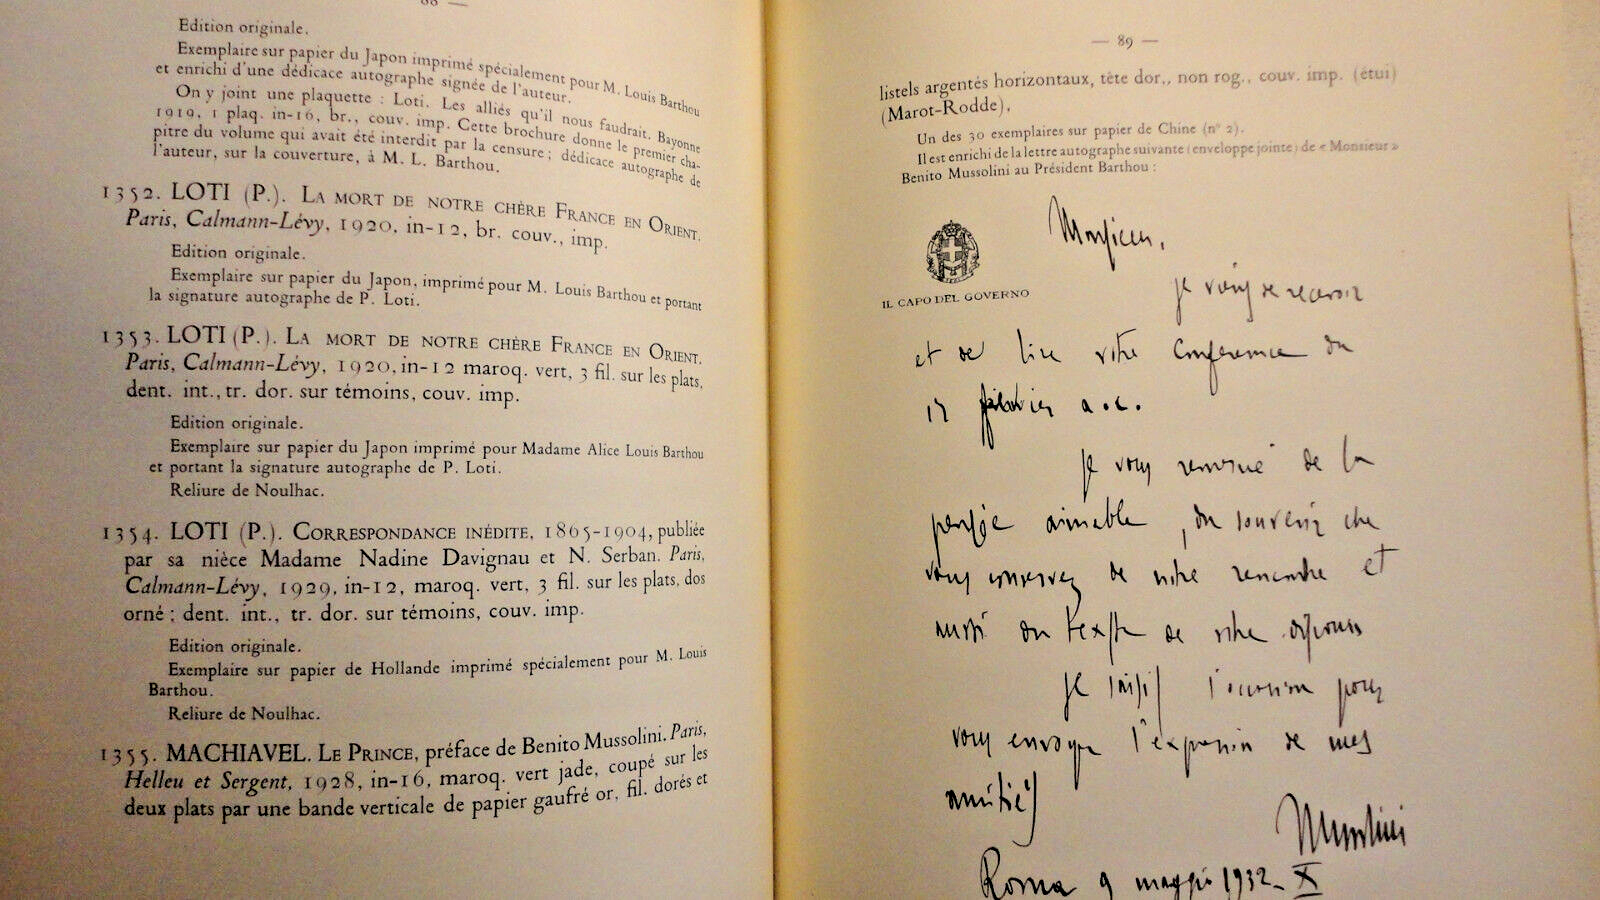 Edition originale.
Exemplaire sur papier du Japon imprimé spécialement pour M. Louis Barthou
et enrichi d'une dédicace autographe signée de l'auteur.
On y joint une plaquette : Loti. Les alliés qu'il nous faudrait. Bayonne
1919, 1 plaq. in-16, br., couv. imp. Cette brochure donne le premier cha-
pitre du volume qui avait été interdit par la censure ; dédicace autographe de
l'auteur, sur la couverture, à M. L. Barthou.
1352. LOTI (P.). LA MORT DE NOTRE CHÈRE FRANCE EN ORIENT.
Paris, Calmann-Lévy, 1920, in-12, br. couv., imp.
Edition originale.
Exemplaire sur papier du Japon, imprimé pour M. Louis Barthou et portant
la signature autographe de P. Loti.
1353. LOTI (P.). LA MORT DE NOTRE CHÈRE FRANCE EN ORIENT.
Paris, Calmann-Lévy, 1920, in-12 maroq. vert, 3 fil. sur les plats,
dent. int., tr. dor. sur témoins, couv. imp.
Edition originale.
Exemplaire sur papier du Japon imprimé pour Madame Alice Louis Barthou
et portant la signature autographe de P. Loti.
Reliure de Noulhac.
1354. LOTI (P.). CORRESPONDANCE INÉDITE, 1865-1904, publiée
par sa nièce Madame Nadine Davignau et N. Serban. Paris,
Calmann-Lévy, 1929, in-12, maroq. vert, 3 fil. sur les plats, dos
orné ; dent. int., tr. dor. sur témoins, couv. imp.
Edition originale.
Exemplaire sur papier de Hollande imprimé spécialement pour M. Louis
Barthou.
Reliure de Noulhac.
1355. MACHIAVEL. LE PRINCE, préface de Benito Mussolini. Paris,
Helleu et Sergent, 1928, in-16, maroq. vert jade, coupé sur les
deux plats par une bande verticale de papier gaufré or, fil. dorés et
— 89 —
listels argentés horizontaux, tête dor., non rog., couv. imp. (étui)
(Marot-Rodde),
Un des 30 exemplaires sur papier de Chine (n° 2).
Il est enrichi de la lettre autographe suivante (enveloppe jointe) de « Monsieur »
Benito Mussolini au Président Barthou :
IL CAPO DEL GOVERNO
Monsieur,
je viens de recevoir
et de lire votre conference du
février a.c.
Je vous remercie de la
pensée aimable, du souvenir che
vous conservez de notre rencontre et
aussi du texte de votre discours
Je saisis l'occasion pour
vous envoyer l'expression de mes
amitiés
Mussolini
Roma 9 maggio 1932 - X